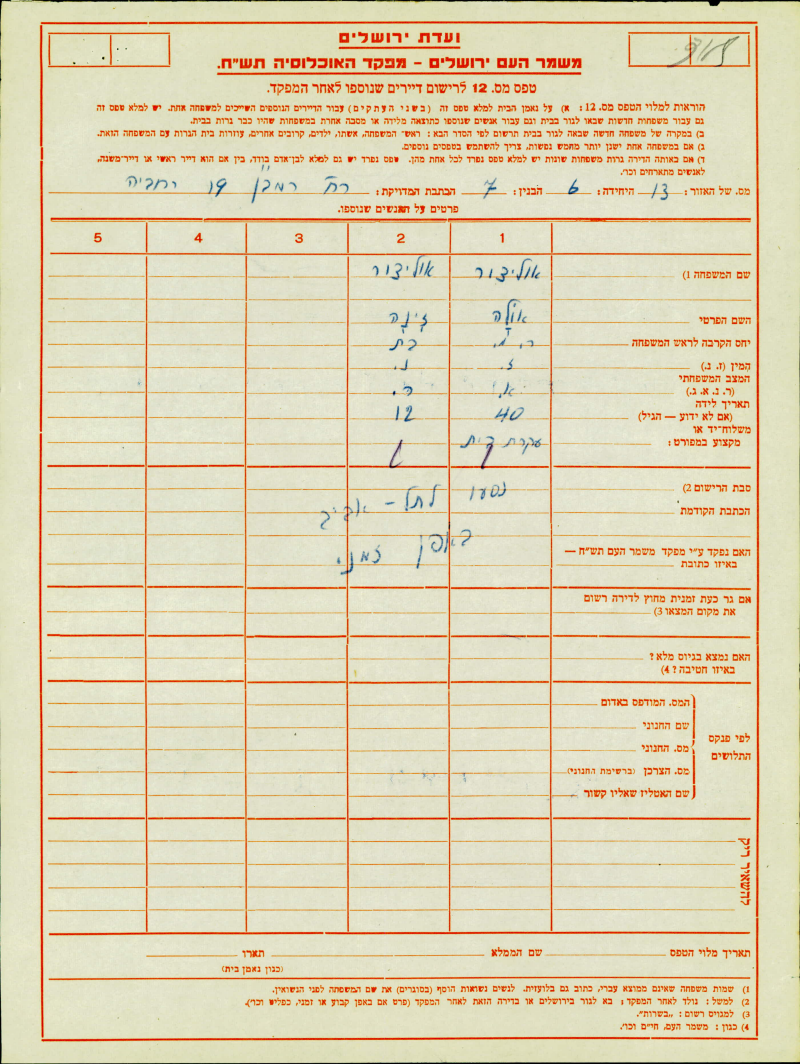 ועדת ירושלים
משמר העם ירושלים – מפקד האוכלוסיה תש"ח.
טפס מס. 12 לרישום דיירים שנוספו לאחר המפקד.
הוראות למלוי הטפס מס. 12: א) על נאמן הבית למלא טפס זה (בשני העתקים) עבור הדיירים הנוספים השייכים למשפחה אחת. יש למלא טפס זה
גם עבור משפחות חדשות שבאו לגור בבית וגם עבור אנשים שנוספו כתוצאה מלידה או מסבה אחרת במשפחות שהיו כבר גרות בבית.
ב) במקרה של משפחה חדשה שבאה לגור בבית תרשום לפי הסדר הבא: ראש המשפחה, אשתו, ילדים, קרובים אחרים, עוזרות בית הגרות עם המשפחה הזאת.
ג) אם במשפחה אחת ישנן יותר מחמש נפשות, צריך להשתמש בטפסים נוספים.
ד) אם באותה הדירה גרות משפחות שונות יש למלא טפס נפרד לכל אחת מהן. טפס נפרד יש גם למלא לבן־אדם בודד, בין אם הוא דייר ראשי או דייר־משנה,
לאנשים מתארחים וכו'.
מס. של האזור: 13 היחידה: 6 הבנין: 7 הכתבת המדויקת: רח' רמב"ן 19 רחביה
פרטים על האנשים שנוספו.
1 2 3 4 5
שם המשפחה 1) אוליצור אוליצור
השם הפרטי אולה זינה
יחס הקרבה לראש המשפחה ר. מ. בת
המין (ז. נ.) ז. נ.
המצב המשפחתי
(ר. נ. א. ג.) א. ר.
תאריך לידה
(אם לא ידוע — הגיל) 40 12
משלוח־יד או
מקצוע במפורט: עקרת בית
סבת הרישום 2) נסעו לתל – אביב
הכתבת הקודמת
באפן זמני.
האם נפקד ע"י מפקד משמר העם תש"ח —
באיזו כתובת
אם גר כעת זמנית מחוץ לדירה רשום
את מקום המצאו 3)
האם נמצא בגיוס מלא?
באיזו חטיבה? 4)
לפי פנקס
התלושים
המס. המודפס באדום
שם החנוני
מס. החנוני
מס. הצרכן (ברשימת החנוני)
שם האטליז שאליו קשור
להשאיר ריק
תאריך מלוי הטפס שם הממלא תארו
(כגון נאמן בית)
1) שמות משפחה שאינם ממוצא עברי, כתוב גם בלועזית. לנשים נשואות הוסף (בסוגרים) את שם המשפחה לפני הנשואין.
2) למשל: נולד לאחר המפקד; בא לגור בירושלים או בדירה הזאת לאחר המפקד (פרט אם באפן קבוע או זמני, כפליט וכו').
3) למגויס רשום: „בשרות".
4) כגון: משמר העם, חי"ם וכו'.